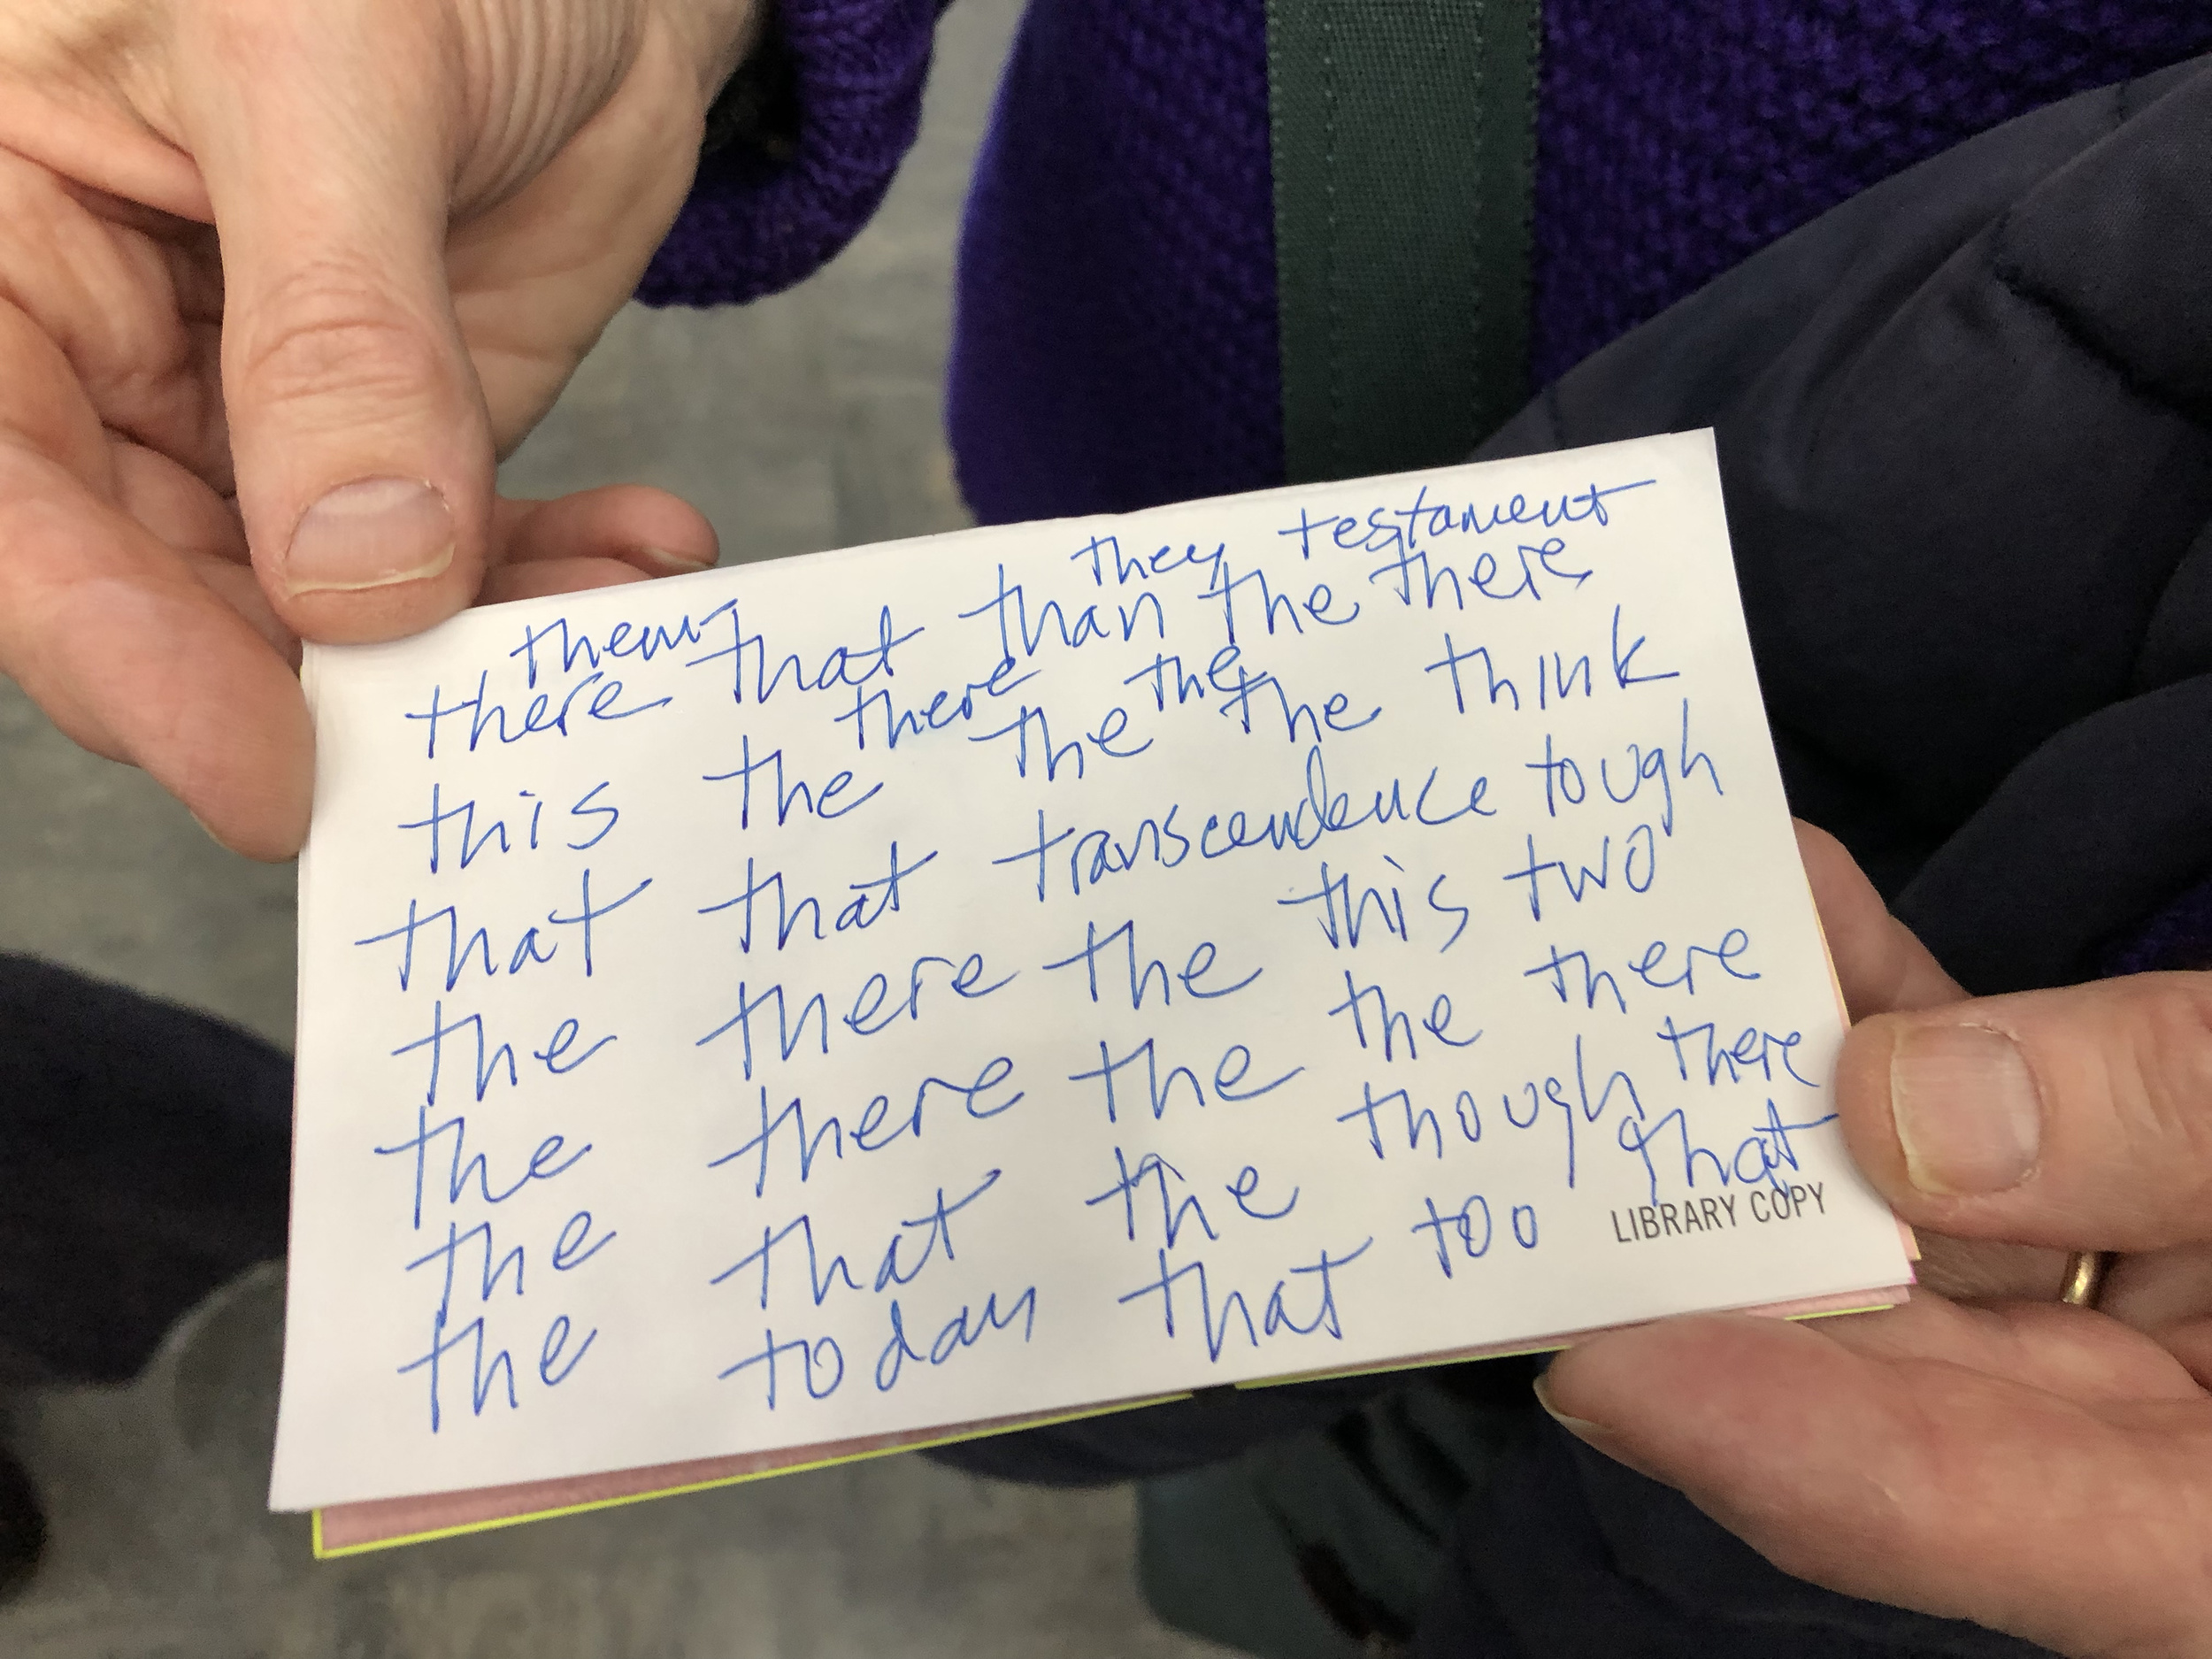 they testament
them
there that than the there
there the
this the the the think
that that transcendence tough
the there the this two
the there the the there
the that the though there
the today that too that
LIBRARY COPY